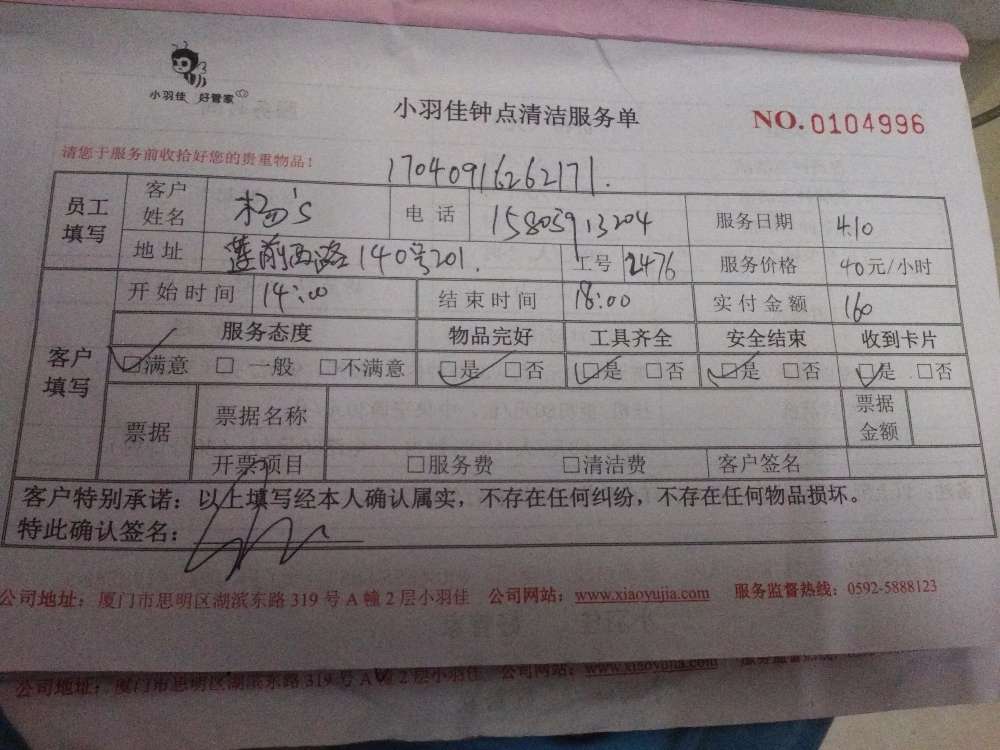 小羽佳 好管家
小羽佳钟点清洁服务单
NO.0104996
请您于服务前收拾好您的贵重物品！
17040916262171.
员工填写 客户姓名 杨's 电话 15805913204 服务日期 4.10
地址 莲前西路140号201. 工号 2476 服务价格 40元/小时
客户填写 开始时间 14:00 结束时间 18:00 实付金额 160
服务态度 物品完好 工具齐全 安全结束 收到卡片
☑满意 □一般 □不满意 ☑是 □否 ☑是 □否 ☑是 □否 ☑是 □否
票据 票据名称 票据金额
开票项目 □服务费 □清洁费 客户签名
客户特别承诺：以上填写经本人确认属实，不存在任何纠纷，不存在任何物品损坏。
特此确认签名：
公司地址：厦门市思明区湖滨东路319号A幢2层小羽佳 公司网站：www.xiaoyujia.com 服务监督热线：0592-5888123
公司地址：厦门市思明区湖滨东路319号A幢2层小羽佳 公司网站：www.xiaoyujia.com